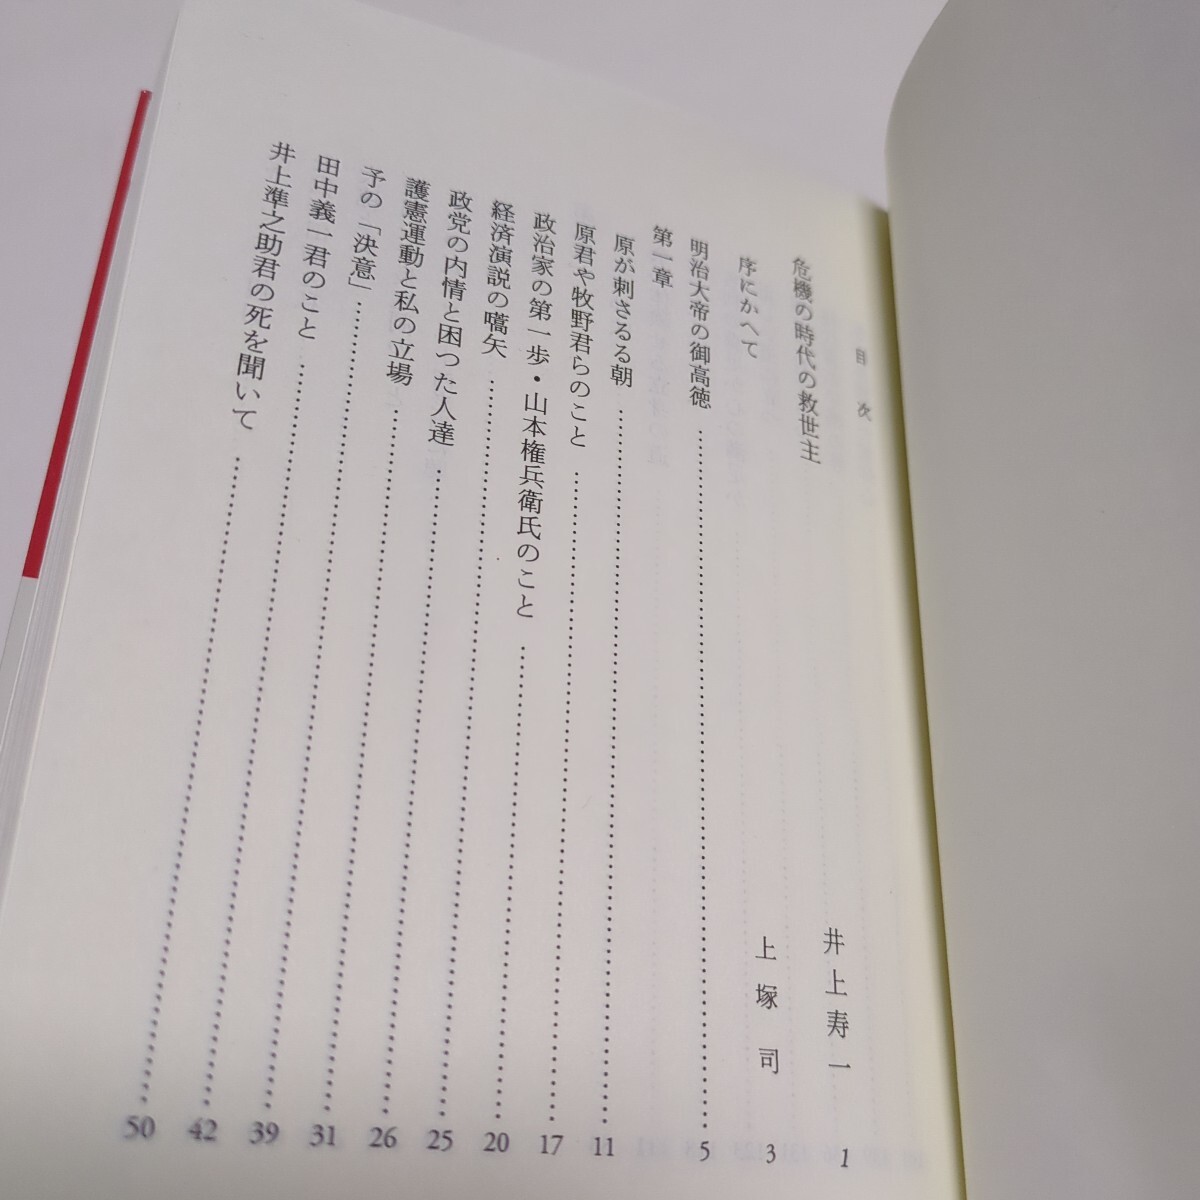 目次
危機の時代の救世主 井上寿一 1
序にかへて 上塚司 3
明治大帝の御高徳 …… 5
第一章
原が刺さるる朝 …… 11
原君や牧野君らのこと …… 17
政治家の第一歩・山本権兵衛氏のこと …… 20
経済演説の嚆矢 …… 25
政党の内情と困つた人達 …… 26
護憲運動と私の立場 …… 31
予の「決意」 …… 39
田中義一君のこと …… 42
井上準之助君の死を聞いて …… 50